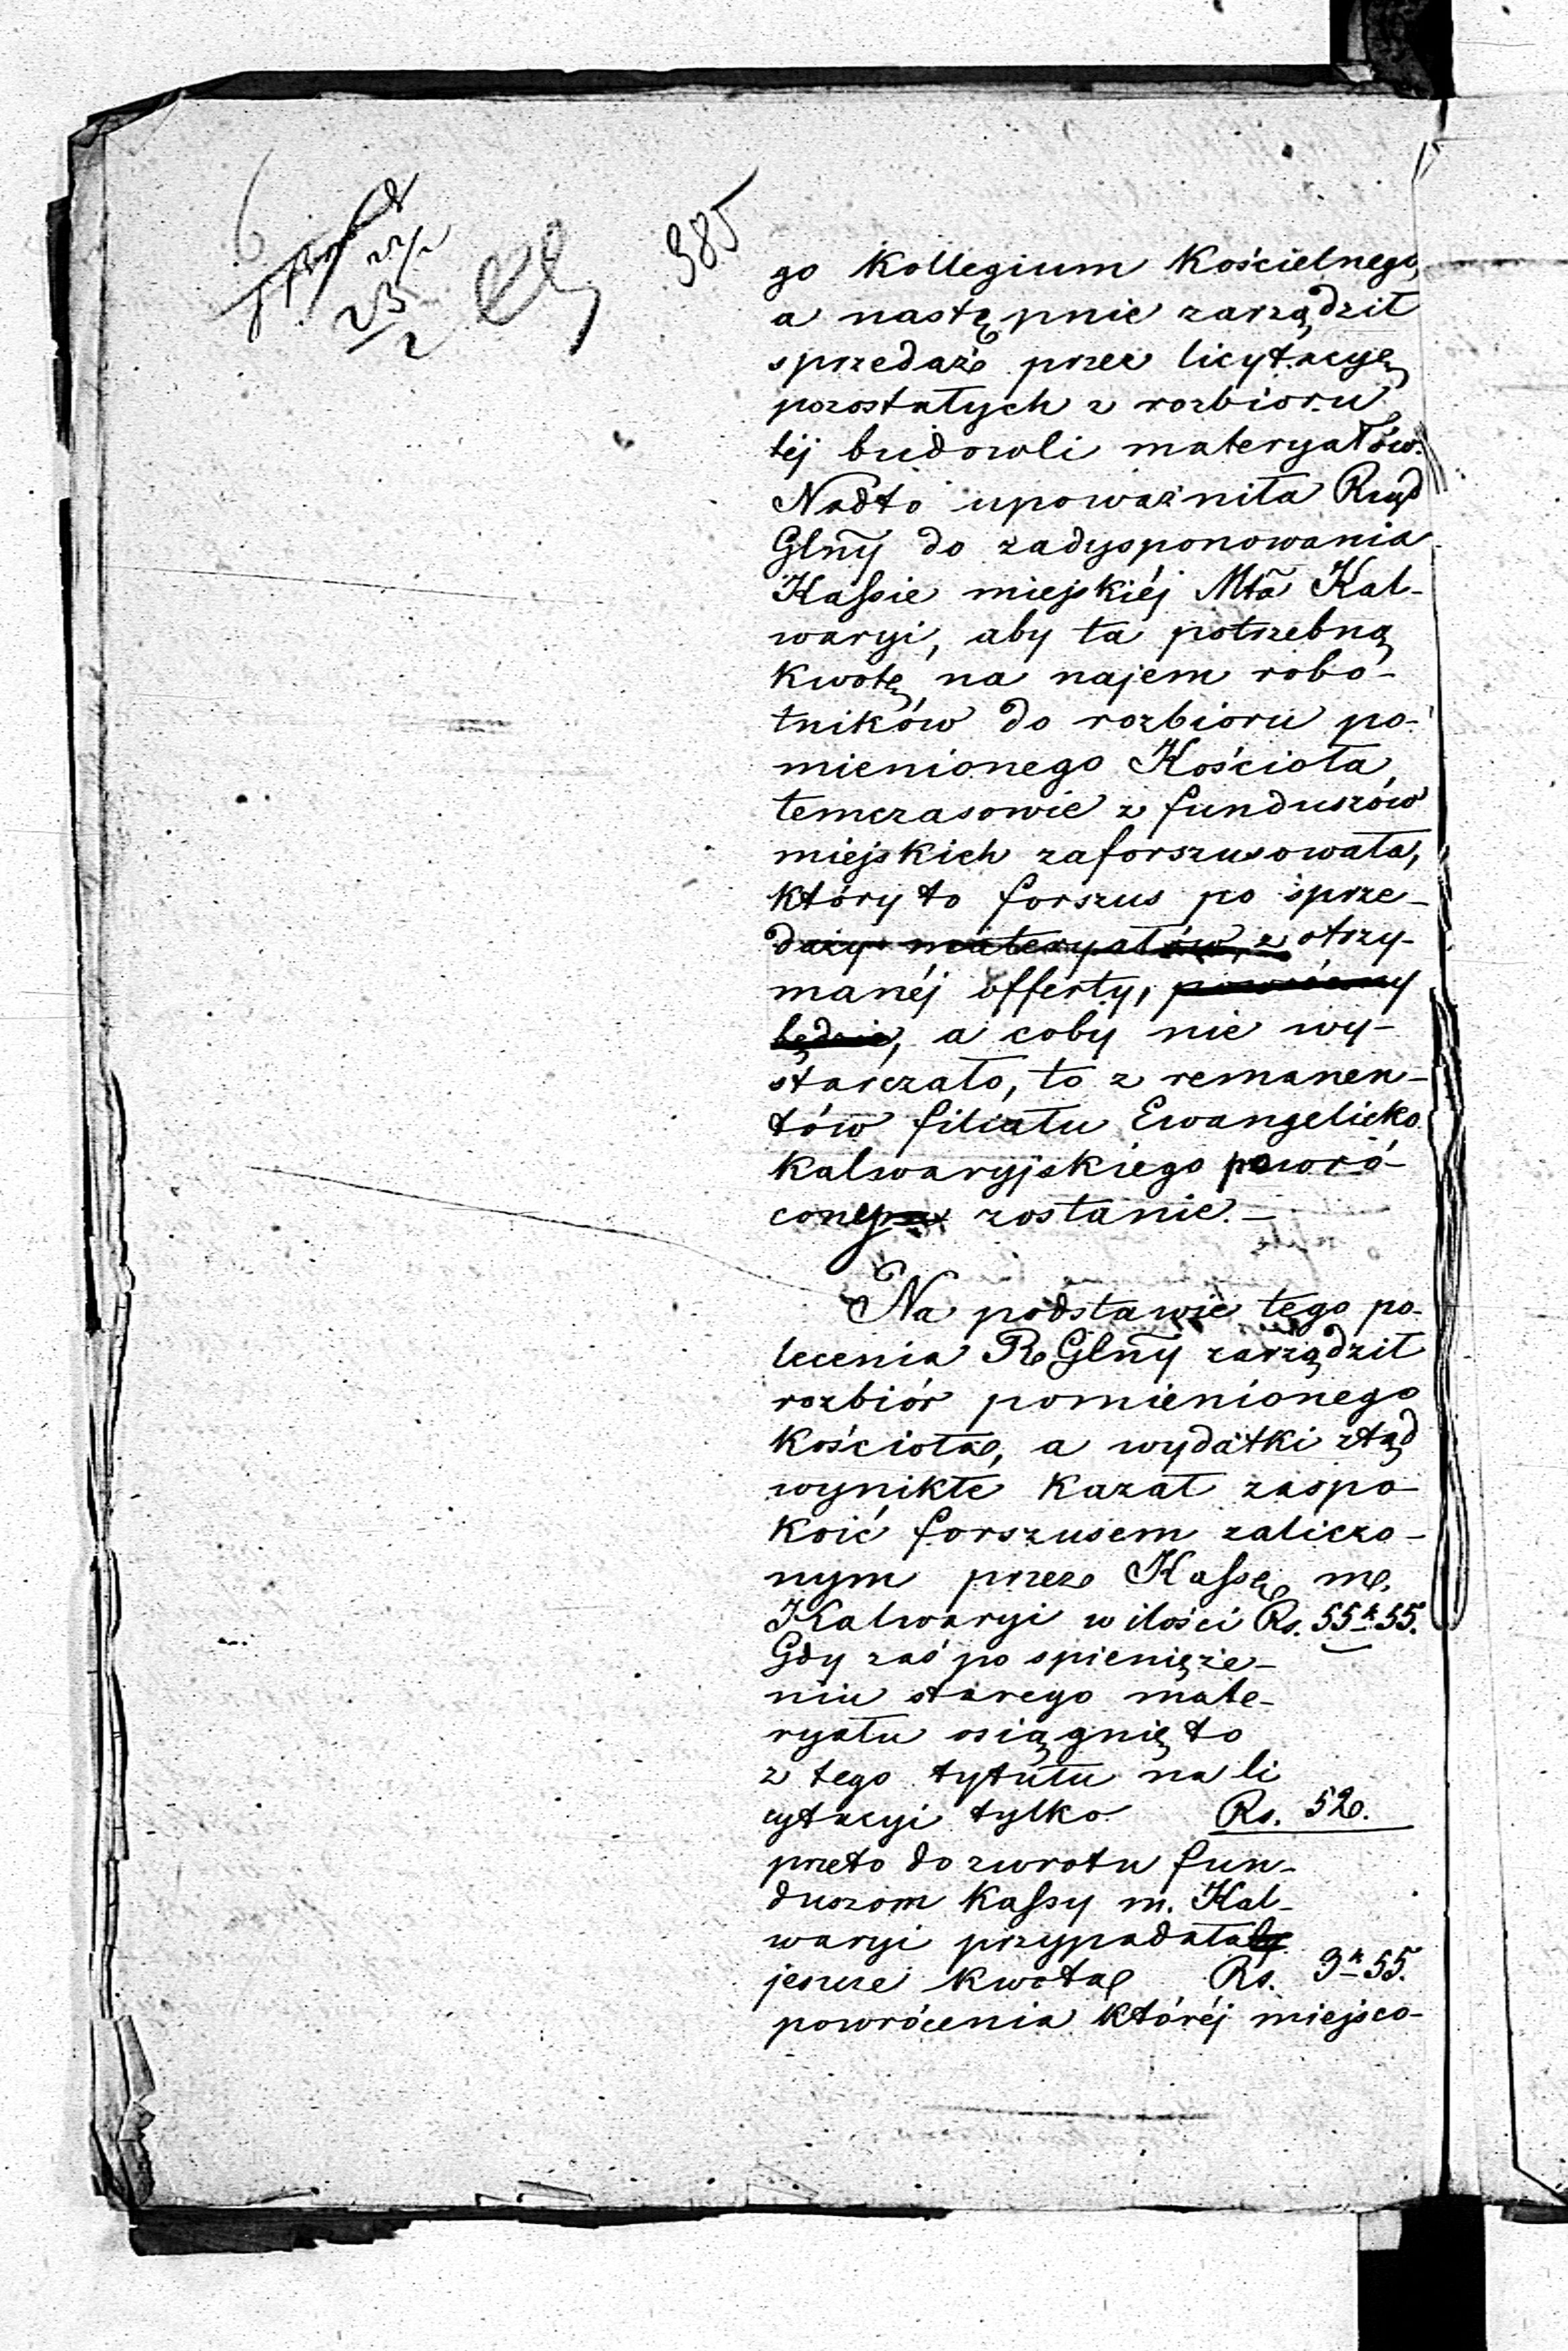 385
go Kollegium Kościelnego,
a następnie zarządził
sprzedaż przez licytacyę
pozostałych z rozbioru
téj budowli materyałów.
Nadto upoważniła Rząd
Glny do zadysponowania
Kassie miejskiéj Mta Kal-
waryi, aby ta potrzebną
kwotę na najem robo-
tników do rozbioru po-
mienionego Kościoła
temczasowie z funduszów
miejskich zaforszusowała,
który to forszus po sprze-
daży materyałów, z otrzy-
manéj offerty, powrócony
będzie, a coby nie wy-
starczało, to z remanen-
tów filiału Ewangelicko
Kalwaryjskiego powró-
cony zostanie. —
Na podstawie tego po-
lecenia R Glny zarządził
rozbiór pomienionego
kościoła, a wydatki ztąd
wynikłe kazał zaspo-
koić forszusem zaliczo-
nym przez Kassę m.
Kalwaryi w ilości Rs. 55 k. 55.
Gdy zaś po spienięże-
niu starego mate-
ryału osiągnięto
z tego tytułu na li
cytacyi tylko Rs. 52.
przeto do zwrotu fun-
duszom Kassy m. Kal-
waryi przypadała
jeszcze kwota Rs. 3 k 55.
powrócenia któréj miejsco-